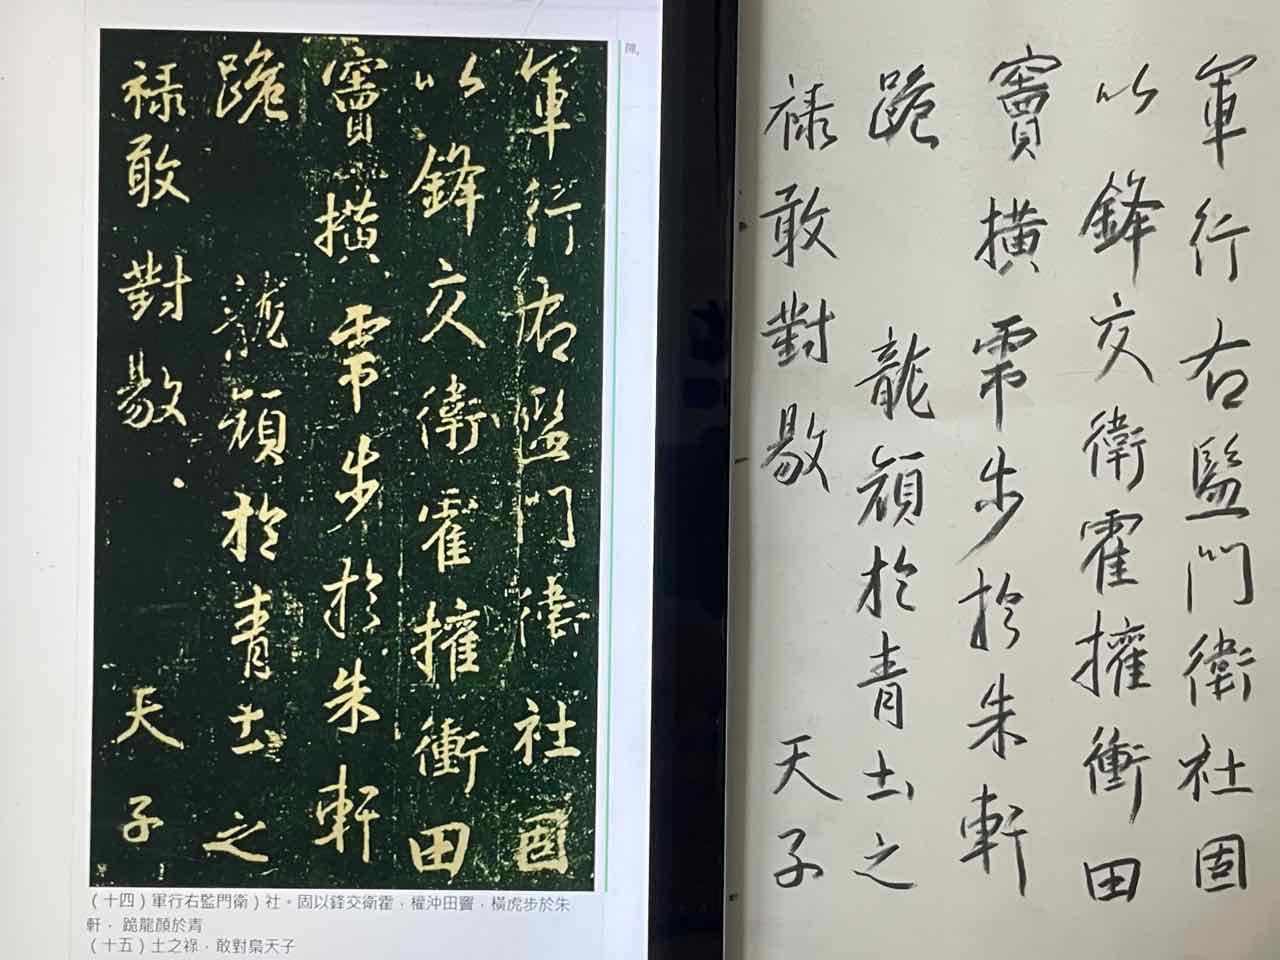 軍行右監門衛社固
以鋒交衛霍擁衝田
竇橫虎步於朱軒
跪龍顏於青土之
祿敢對敭天子
(十四)軍行右監門衛)社。固以鋒交衛霍,權沖田竇,橫虎步於朱
軒, 跪龍顏於青
(十五)土之祿,敢對梟天子
軍行右監門衛社固
以鋒交衛霍擁衝田
竇橫虎步於朱軒
跪龍顏於青土之
祿敢對敭天子